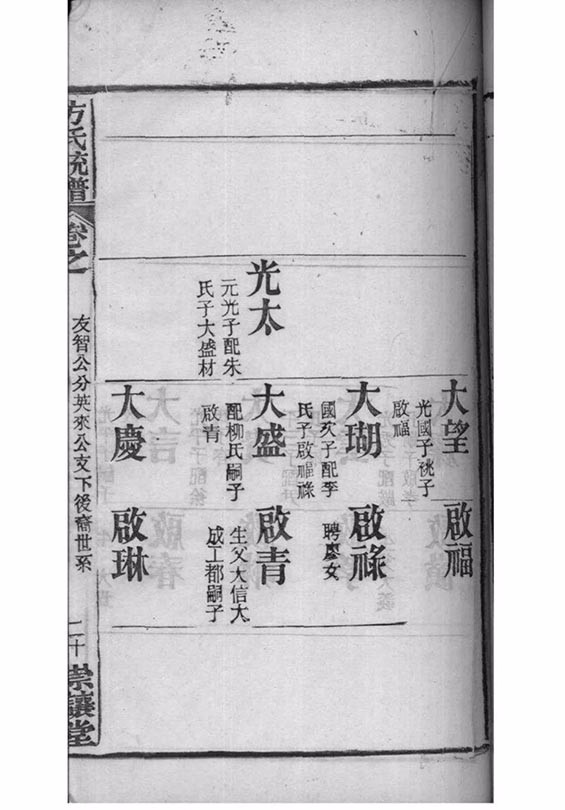 大望
光國子祧子
啟福
啟福
大瑚
國𤆬子配李
氏子啟福祿
啟祿
聘廖女
光太
元光子配朱
氏子大盛材
大盛
配柳氏嗣子
啟青
啟青
生父大信大
成工都嗣子
大慶
啟琳
方氏統譜
卷之
友智公分英來公支下後裔世系
二十
崇讓堂